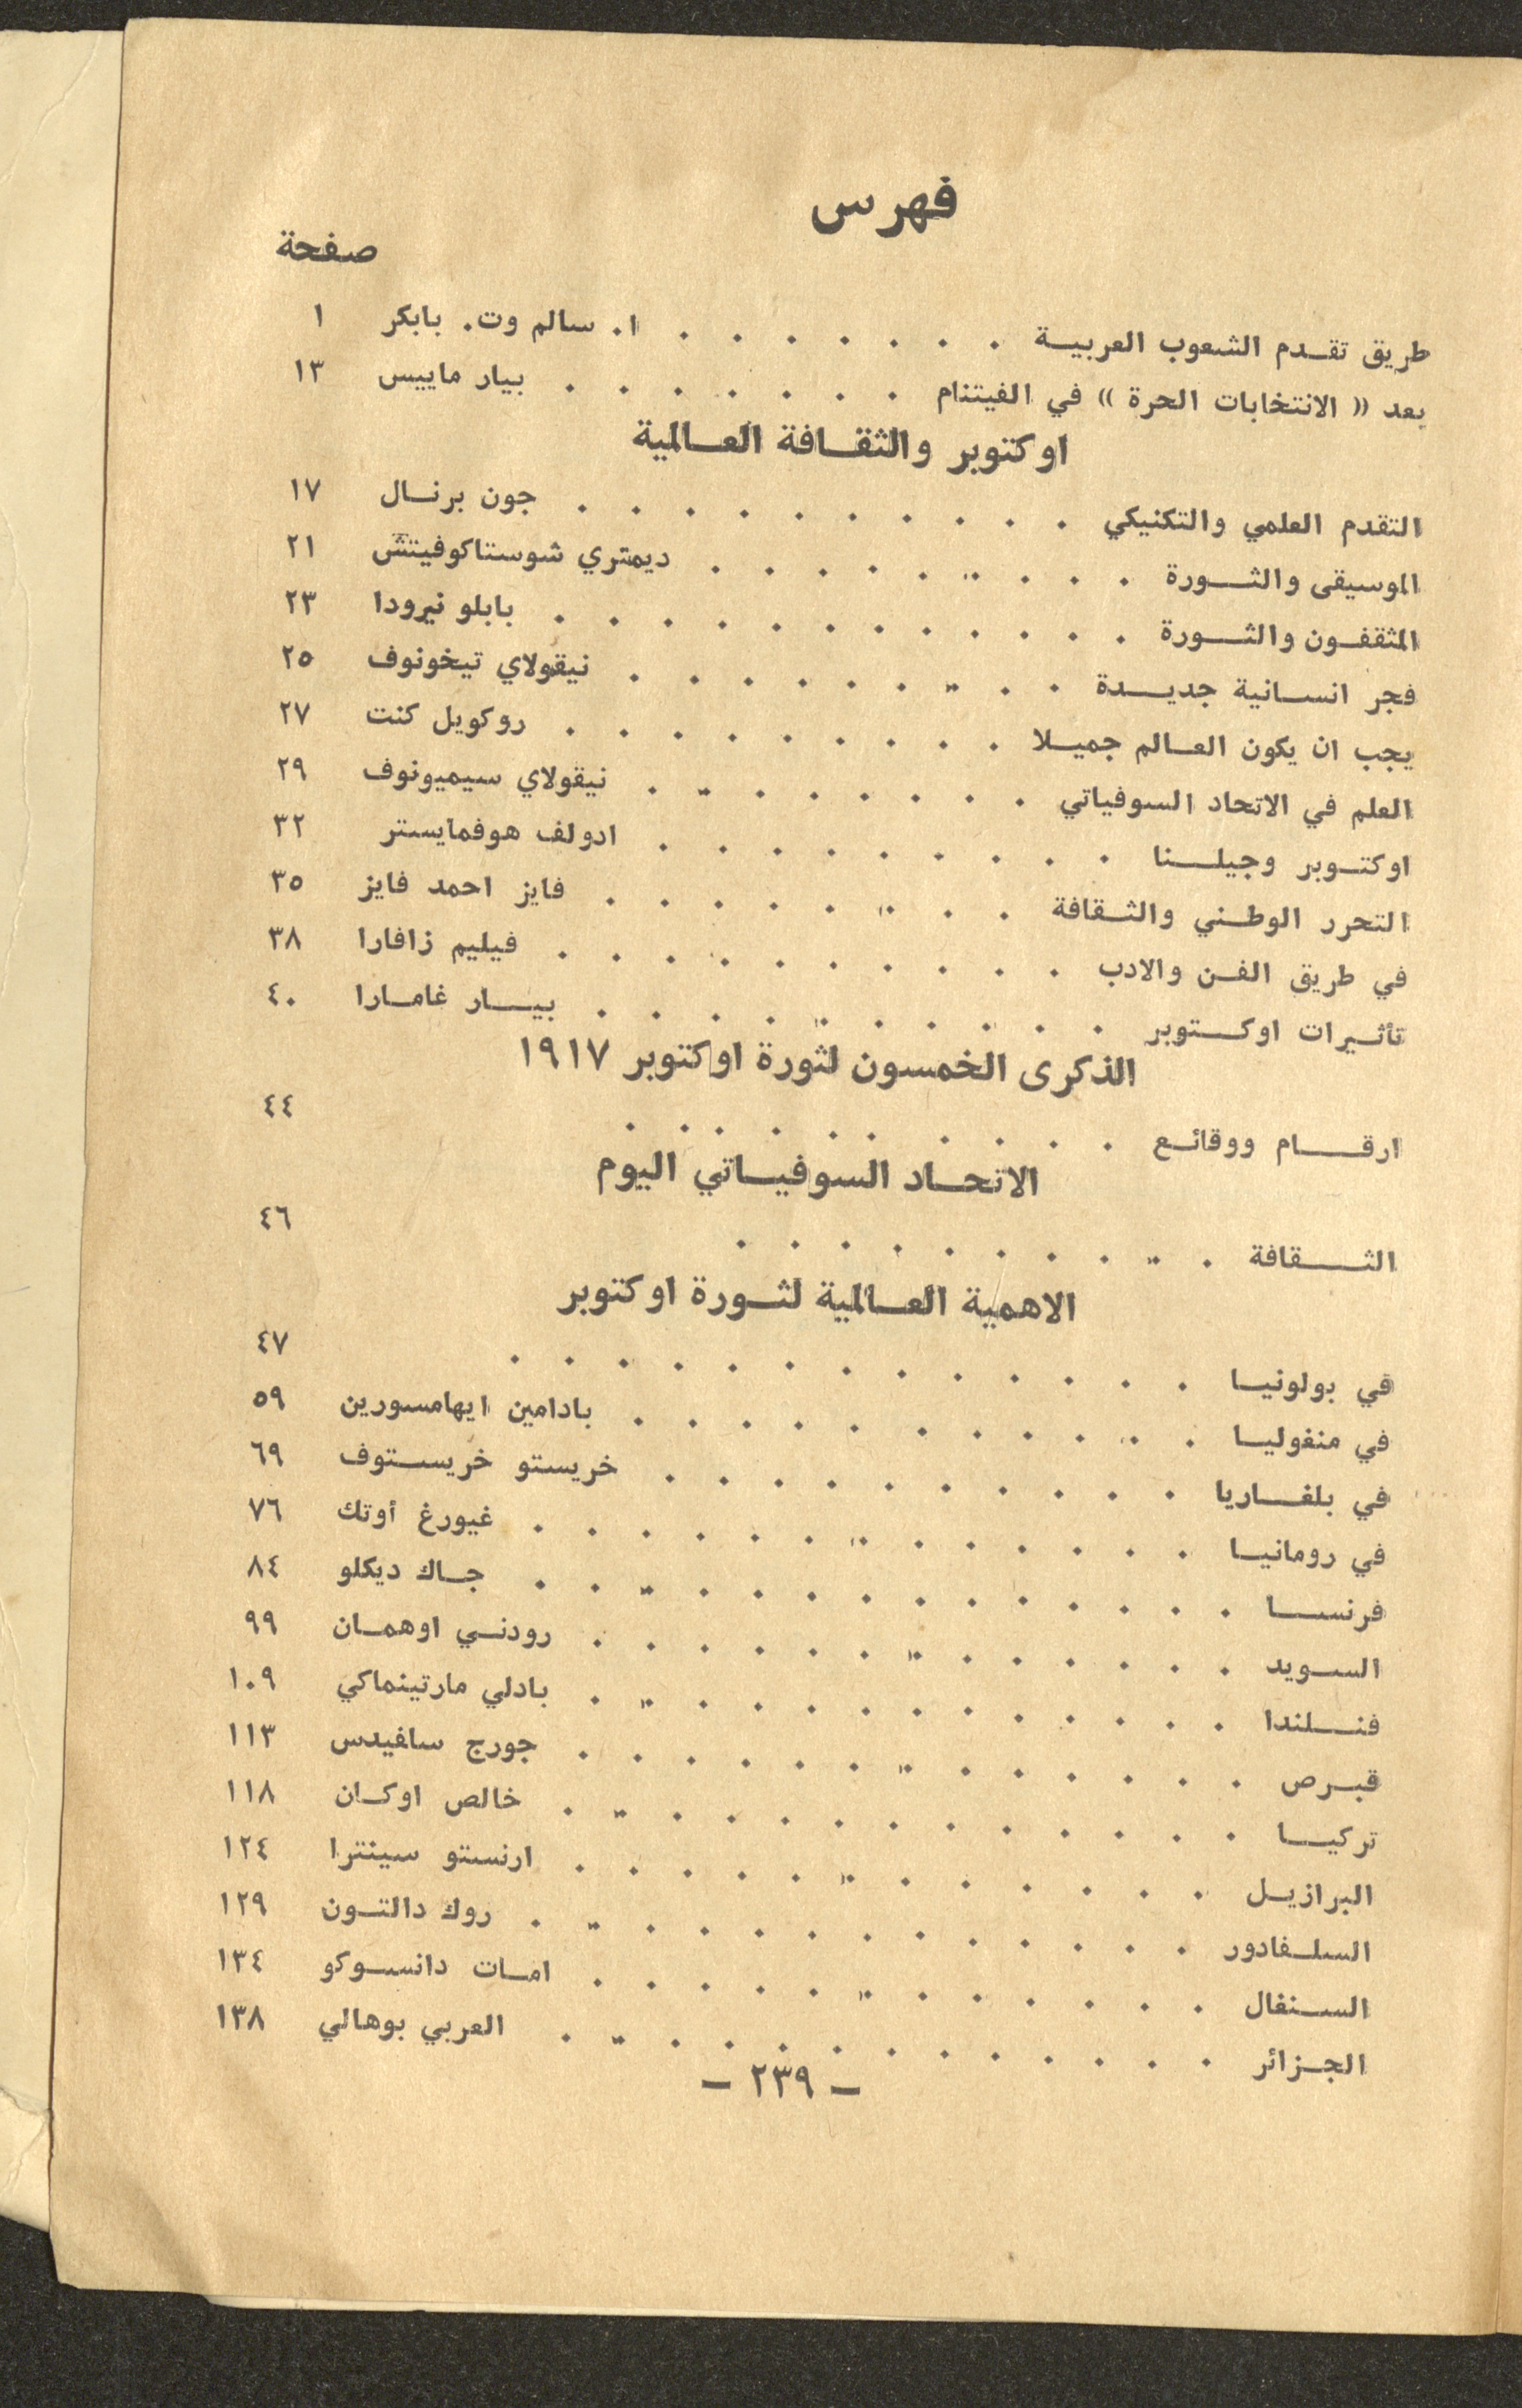 فهرس
صفحة
طريق تقدم الشعوب العربية . . . . . . . ا. سالم وت. بابكر ١
بعد « الانتخابات الحرة » في الفيتنام . . . . . . . بيار ماييس ١٣
اوكتوبر والثقافة العالمية
التقدم العلمي والتكنيكي . . . . . . . . . . جون برنال ١٧
الموسيقى والثورة . . . . . . . . . ديمتري شوستاكوفيتش ٢١
المثقفون والثورة . . . . . . . . . . . بابلو نيرودا ٢٣
فجر انسانية جديدة . . . . . . . . . نيقولاي تيخونوف ٢٥
يجب ان يكون العالم جميلا . . . . . . . . . روكويل كنت ٢٧
العلم في الاتحاد السوفياتي . . . . . . . . نيقولاي سيميونوف ٢٩
اوكتوبر وجيلنا . . . . . . . . . ادولف هوفمايستر ٣٢
التحرر الوطني والثقافة . . . . . . . . فايز احمد فايز ٣٥
في طريق الفن والادب . . . . . . . . . . فيليم زافارا ٣٨
تأثيرات اوكتوبر . . . . . . . . . . بيار غامارا ٤٠
الذكرى الخمسون لثورة اوكتوبر ١٩١٧
ارقام ووقائع . . . . . . . . . . ٤٤
الاتحاد السوفياتي اليوم
الثقافة . . . . . . . . . . ٤٦
الاهمية العالمية لثورة اوكتوبر
في بولونيا . . . . . . . . . . . . . ٤٧
في منغوليا . . . . . . . . . . بادامين ايهامسورين ٥٩
في بلغاريا . . . . . . . . . . خريستو خريستوف ٦٩
في رومانيا . . . . . . . . . . . . . غيورغ أوتك ٧٦
فرنسا . . . . . . . . . . . . . جاك ديكلو ٨٤
السويد . . . . . . . . . . . . رودني اوهمان ٩٩
فنلندا . . . . . . . . . . . . بادلي مارتينماكي ١٠٩
قبرص . . . . . . . . . . . . جورج سافيدس ١١٣
تركيا . . . . . . . . . . . . خالص اوكان ١١٨
البرازيل . . . . . . . . . . . . ارنستو سينترا ١٢٤
السلفادور . . . . . . . . . . . . روك دالتون ١٢٩
السنغال . . . . . . . . . . . امات دانسوكو ١٣٤
الجزائر . . . . . . . . . . . . العربي بوهالي ١٣٨
– ٢٣٩ –